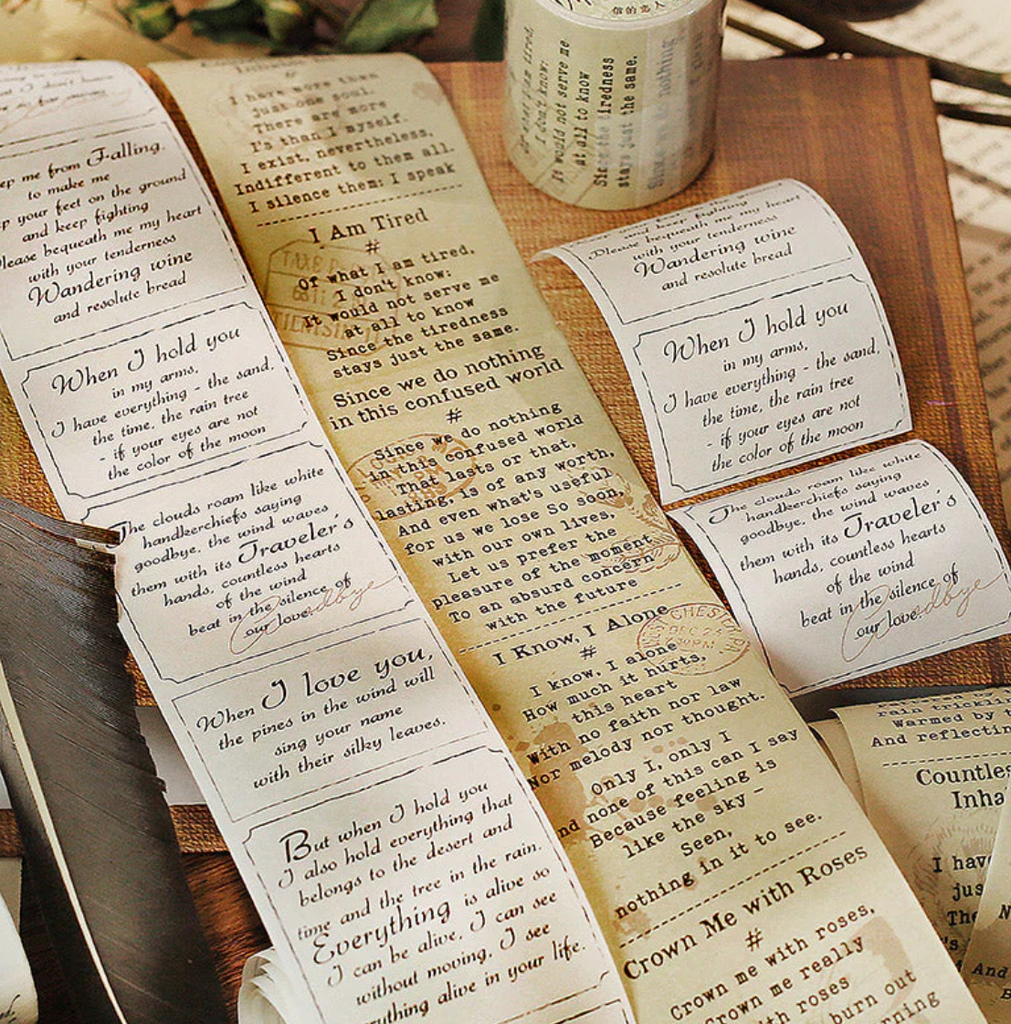 me from Falling.
to make me
your feet on the ground
and keep fighting
Please bequeath me my heart
with your tenderness
Wandering wine
and resolute bread
When I hold you
in my arms,
I have everything - the sand,
the time, the rain tree
- if your eyes are not
the color of the moon
The clouds roam like white
handkerchiefs saying
goodbye, the wind waves
them with its Traveler's
hands, countless hearts
of the wind
beat in the silence of
our love.
Goodbye
When I love you,
the pines in the wind will
sing your name
with their silky leaves.
But when I hold you
I also hold everything that
belongs to the desert and
time and the tree in the rain.
Everything is alive so
I can be alive, I can see
without moving, I see
alive in your life.
I have more than
just one soul.
There are more
I's than I myself.
I exist, nevertheless,
Indifferent to them all.
I silence them: I speak
I Am Tired
#
Of what I am tired,
I don't know:
It would not serve me
at all to know
Since the tiredness
stays just the same.
Since we do nothing
in this confused world
#
Since we do nothing
in this confused world
That lasts or that,
lasting, is of any worth,
And even what's useful
for us we lose So soon,
with our own lives,
Let us prefer the
pleasure of the moment
To an absurd concern
with the future
I Know, I Alone
#
I know, I alone
How much it hurts,
this heart
With no faith nor law
Nor melody nor thought.
Only I, only I
And none of this can I say
Because feeling is
like the sky -
Seen,
nothing in it to see.
Crown Me with Roses
#
Crown me with roses,
Crown me really
with roses
burn out
I don't know:
It would not serve me
at all to know
Since the tiredness
stays just the same.
and keep fighting
Please bequeath me my heart
with your tenderness
Wandering wine
and resolute bread
When I hold you
in my arms,
I have everything - the sand,
the time, the rain tree
- if your eyes are not
the color of the moon
The clouds roam like white
handkerchiefs saying
goodbye, the wind waves
them with its Traveler's
hands, countless hearts
of the wind
beat in the silence of
our love.
Goodbye
Warmed by
And
I